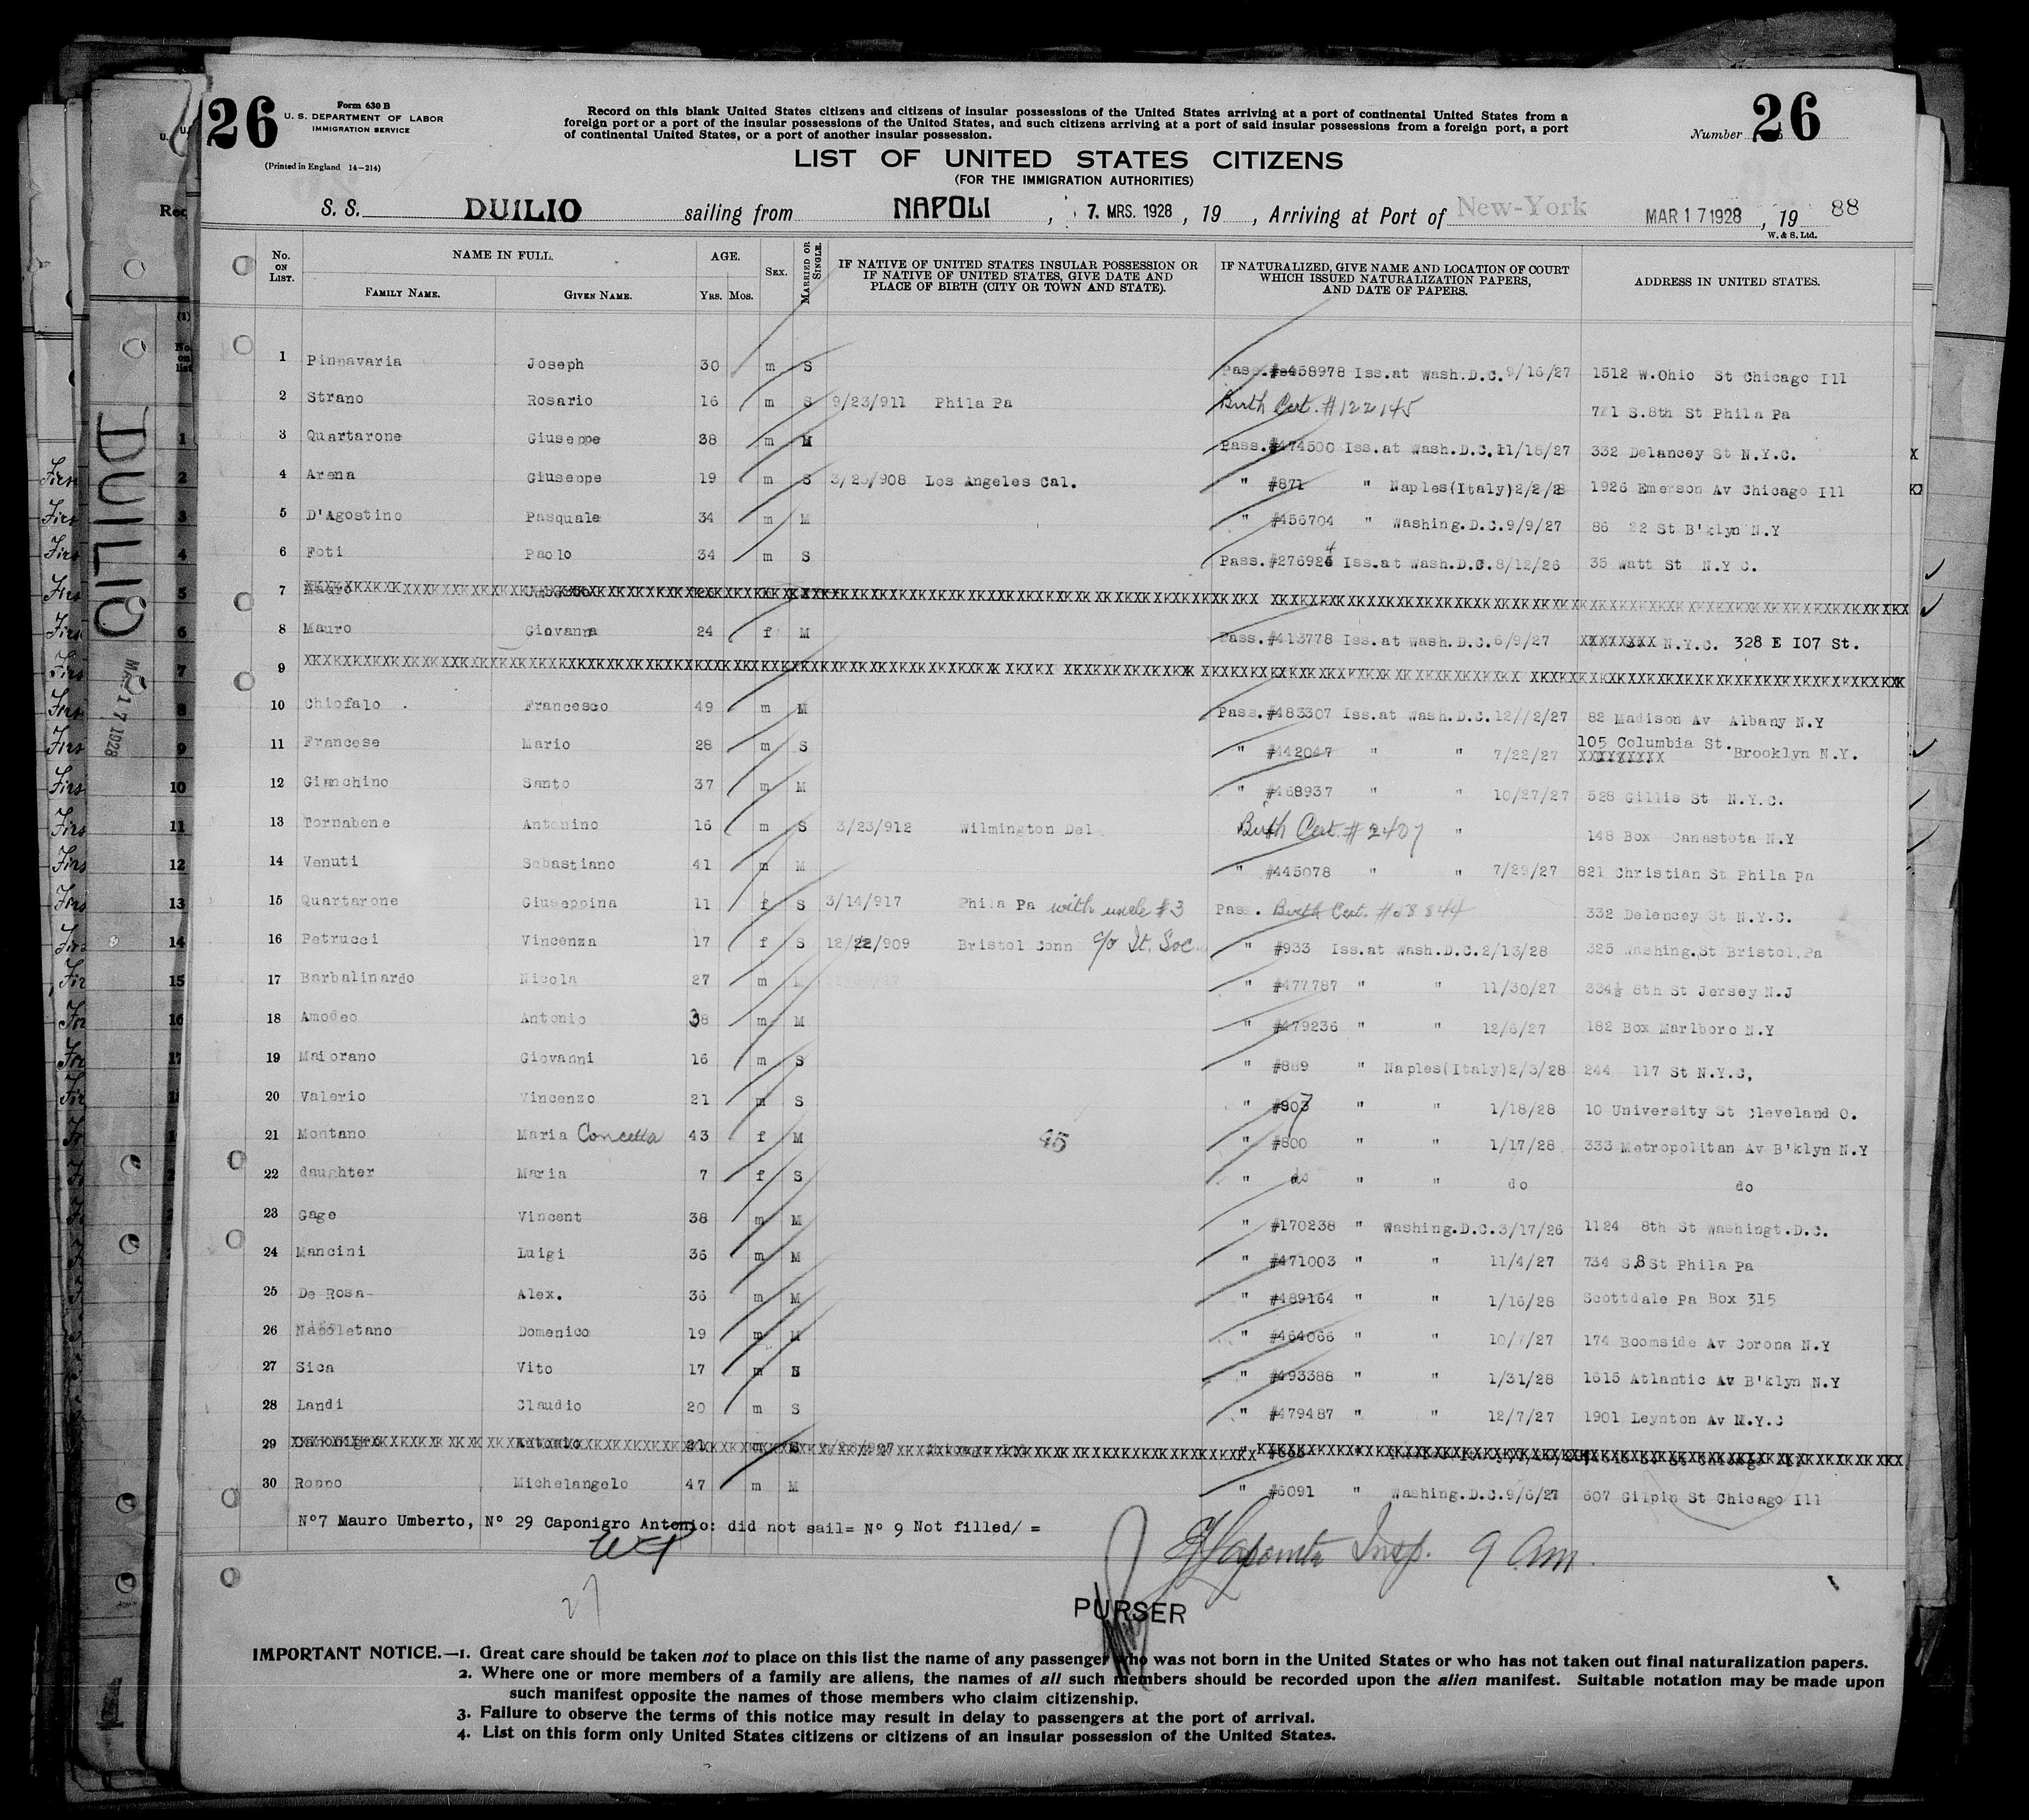 26
Form 630 B
U. S. DEPARTMENT OF LABOR
IMMIGRATION SERVICE
(Printed in England 14-214)
Record on this blank United States citizens and citizens of insular possessions of the United States arriving at a port of continental United States from a
foreign port or a port of the insular possessions of the United States, and such citizens arriving at a port of said insular possessions from a foreign port, a port
of continental United States, or a port of another insular possession.
Number 26
LIST OF UNITED STATES CITIZENS
(FOR THE IMMIGRATION AUTHORITIES)
S. S. DUILIO sailing from NAPOLI , 7. MRS. 1928 , 19 , Arriving at Port of New-York MAR 17 1928 , 19 88
W. & S. Ltd.
No. ON LIST. NAME IN FULL. FAMILY NAME. GIVEN NAME. AGE. YRS. MOS. SEX. MARRIED OR SINGLE. IF NATIVE OF UNITED STATES INSULAR POSSESSION OR IF NATIVE OF UNITED STATES, GIVE DATE AND PLACE OF BIRTH (CITY OR TOWN AND STATE). IF NATURALIZED, GIVE NAME AND LOCATION OF COURT WHICH ISSUED NATURALIZATION PAPERS, AND DATE OF PAPERS. ADDRESS IN UNITED STATES.
1 Pinnavaria Joseph 30 m S Pass.#458978 Iss.at Wash.D.C.9/16/27 1512 W.Ohio St Chicago Ill
2 Strano Rosario 16 m S 9/23/911 Phila Pa Birth Cert. #122145 721 S.8th St Phila Pa
3 Quartarone Giuseppe 38 m M Pass.#474500 Iss.at Wash.D.C.11/18/27 332 Delancey St N.Y.C. X
4 Arena Giuseppe 19 m S 908 Los Angeles Cal. " #871 " Naples(Italy)2/2/28 1926 Emerson Av Chicago Ill
5 D'Agostino Pasquale 34 m M " #456704 " Washing.D.C.9/9/27 86 22 St B'klyn N.Y
6 Foti Paolo 34 m S Pass.#276924 Iss.at Wash.D.C.8/12/26 35 Watt St N.Y C.
7 Mauro
8 Mauro Giovanna 24 f M Pass.#413778 Iss.at Wash.D.C.6/9/27 XXXXXXXX N.Y.C. 328 E 107 St.
9
10 Chiofalo Francesco 49 m M Pass.#483307 Iss.at Wash.D.C.12//2/27 82 Madison Av Albany N.Y
11 Francese Mario 28 m S " #442047 " " 7/22/27 105 Columbia St. XXXXXXXX Brooklyn N.Y.
12 Gianchino Santo 37 m M " #468937 " " 10/27/27 528 Gillis St N.Y.C.
13 Tornabene Antonino 16 m S 3/23/912 Wilmington Del Birth Cert. #2407 " 148 Box Canastota N.Y
14 Venuti Sebastiano 41 m M " #445078 " " 7/29/27 821 Christian St Phila Pa
15 Quartarone Giuseppina 11 f S 3/14/917 Phila Pa with uncle #3 Pass. Birth Cert. 332 Delencey St N.Y.C.
16 Petrucci Vincenza 17 f S 12/22/909 Bristol Conn c/o It. Soc " #933 Iss.at Wash.D.C.2/13/28 325 Washing.St Bristol.Pa
17 Barbalinardo Nicola 27 m " #477787 " " 11/30/27 334½ 8th St Jersey N.J
18 Amodeo Antonio 38 m M " #479236 " " 12/6/27 182 Box Marlboro N.Y
19 Maiorano Giovanni 16 m S " #889 " Naples(Italy)2/3/28 244 117 St N.Y.C,
20 Valerio Vincenzo 21 m S " #807 " " 1/18/28 10 University St Cleveland O.
21 Montano Maria Concetta 43 f M 45 " #800 " " 1/17/28 333 Metropolitan Av B'klyn N.Y
22 daughter Maria 7 f S " do " " do do
23 Gage Vincent 38 m M " #170238 " Washing.D.C.3/17/26 1124 8th St Washingt.D.C.
24 Mancini Luigi 36 m M " #471003 " " 11/4/27 734 S.8 St Phila Pa
25 De Rosa Alex. 36 m M " #489164 " " 1/16/28 Scottdale Pa Box 315
26 Napoletano Domenico 19 m M " #464066 " " 10/7/27 174 Boomside Av Corona N.Y
27 Sica Vito 17 m S " #493388 " " 1/31/28 1615 Atlantic Av B'klyn N.Y
28 Landi Claudio 20 m S " #479487 " " 12/7/27 1901 Leynton Av N.Y.C
29 Antonio 21 m S
30 Roppo Michelangelo 47 m M " #6091 " Washing.D.C.9/6/27 607 Gilpin St Chicago Ill
N°7 Mauro Umberto, N° 29 Caponigro Antonio: did not sail= N° 9 Not filled/ =
Insp. 9 Am.
27
PURSER
IMPORTANT NOTICE.—1. Great care should be taken not to place on this list the name of any passenger who was not born in the United States or who has not taken out final naturalization papers.
2. Where one or more members of a family are aliens, the names of all such members should be recorded upon the alien manifest. Suitable notation may be made upon
such manifest opposite the names of those members who claim citizenship.
3. Failure to observe the terms of this notice may result in delay to passengers at the port of arrival.
4. List on this form only United States citizens or citizens of an insular possession of the United States.
DUILIO
MAR 17 1928